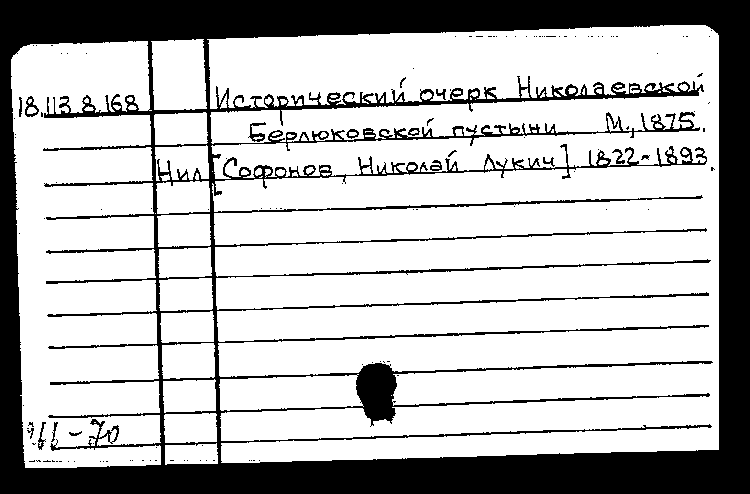 18.113.8.168 Исторический очерк Николаевской
Берлюковской пустыни М., 1875.
Нил [Софонов, Николай Лукич] 1822-1893.
-70